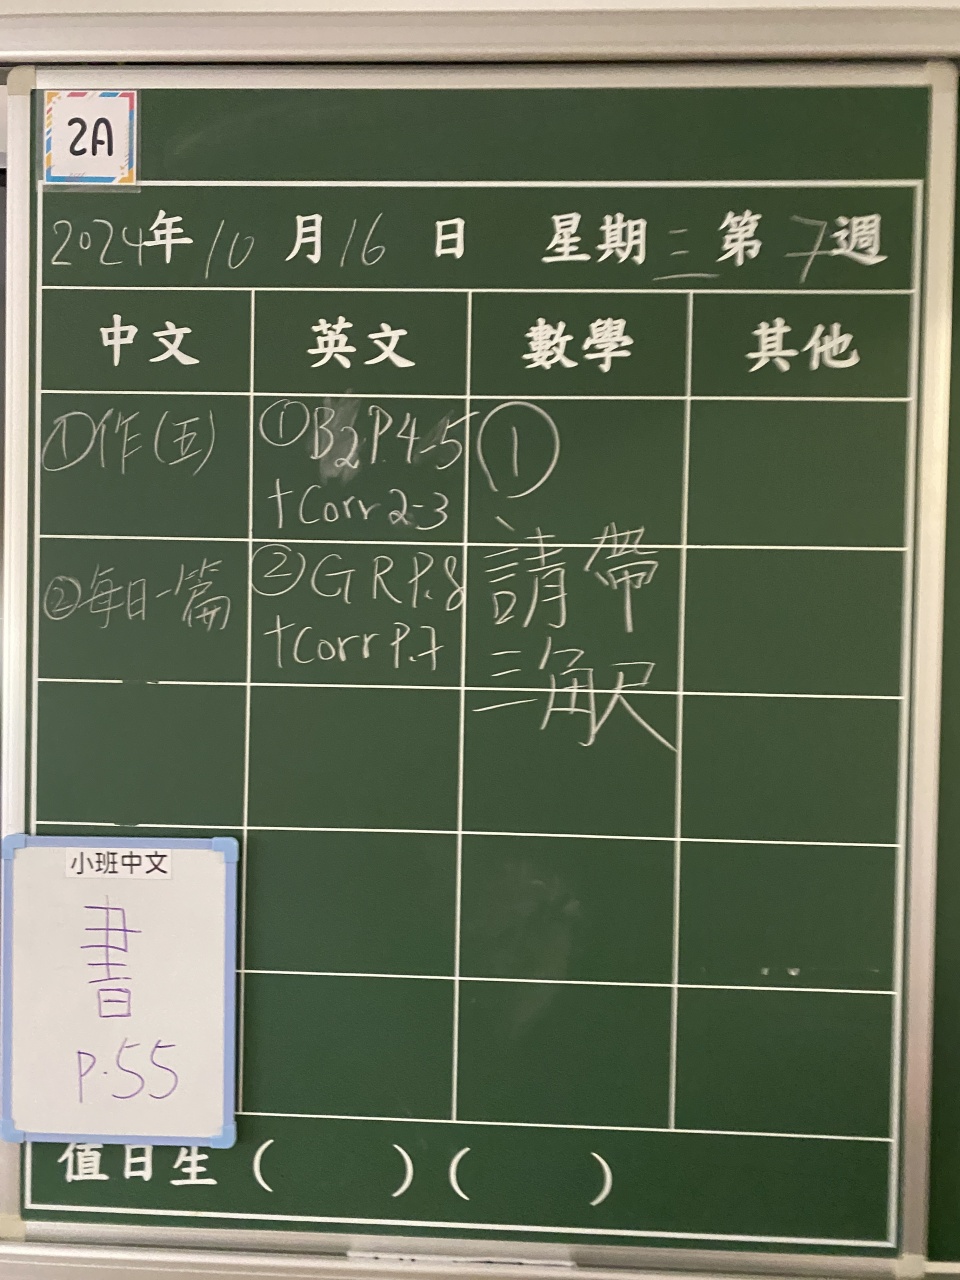 2A
2024年10月16日 星期三第7週
中文 英文 數學 其他
①作(五)
②每日一篇
①B2P.4-5
+Corr 2-3
②GRP.8
+Corr P.7
①
請帶
三角尺
小班中文
書
P.55
值日生 ( ) ( )